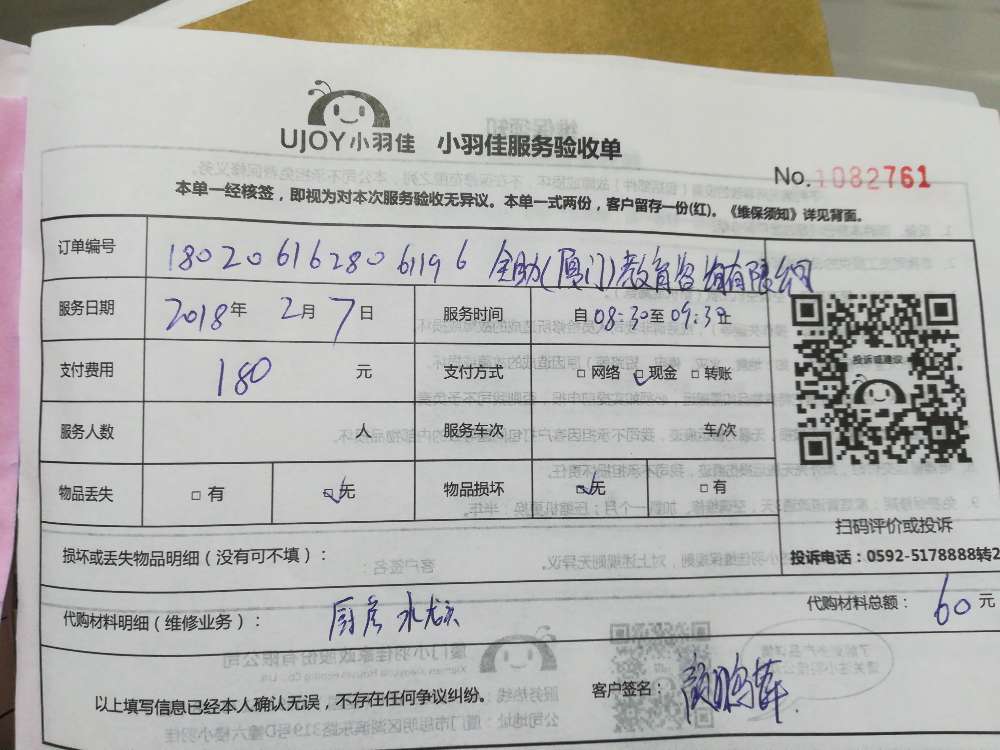 UJOY小羽佳 小羽佳服务验收单
No.1082761
本单一经核签，即视为对本次服务验收无异议。本单一式两份，客户留存一份(红)。《维保须知》详见背面。
订单编号 1802061628061196 全助(厦门)教育咨询有限公司
服务日期 2018年 2月 7日 服务时间 自 08:30至 09:30止
支付费用 180 元 支付方式 □网络 ☑现金 □转账
投诉或建议
服务人数 人 服务车次 车/次
物品丢失 □有 ☑无 物品损坏 ☑无 □有
扫码评价或投诉
损坏或丢失物品明细（没有可不填）：
投诉电话：0592-5178888转2
代购材料明细（维修业务）： 厨房水龙头 代购材料总额： 60元
以上填写信息已经本人确认无误，不存在任何争议纠纷。 客户签名：